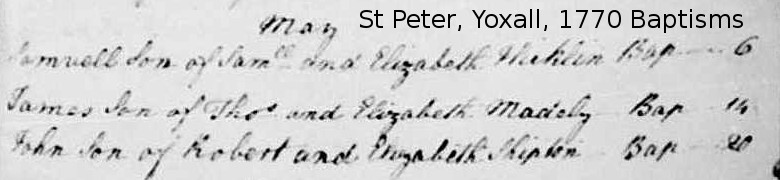 May St Peter, Yoxall, 1770 Baptisms
Samuell Son of Sam.ll and Elizabeth Hicklin Bap 6
James Son of Thos and Elizabeth Madely Bap 14
John Son of Robert and Elizabeth Shipton Bap 20